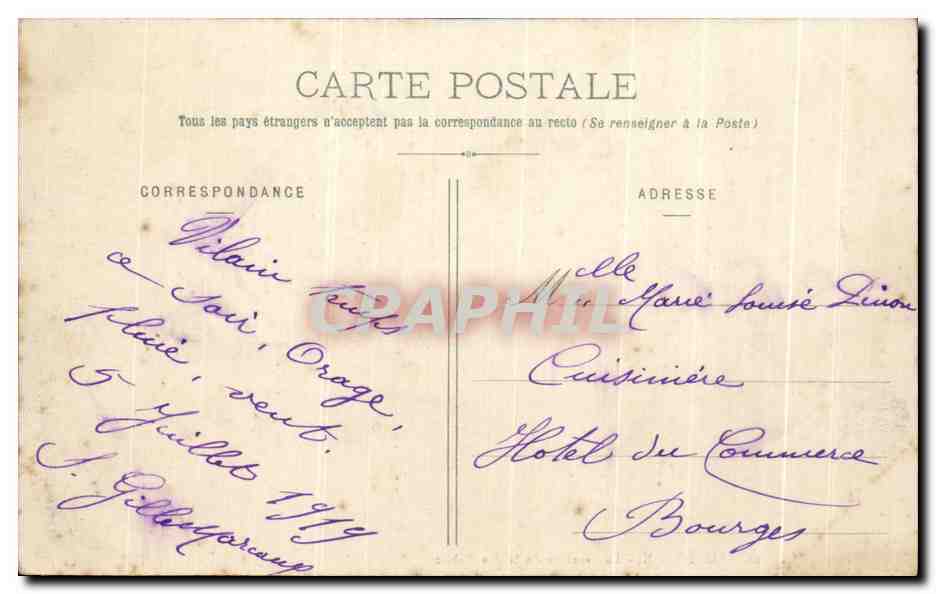 CARTE POSTALE
Tous les pays étrangers n'acceptent pas la correspondance au recto (Se renseigner à la Poste)
CORRESPONDANCE
Vilain Temps
ce soir, Orage,
pluie, vent.
5 Juillet 1919
J. Gille
ADRESSE
Melle Marie Louise
Cuisinière
Hotel du Commerce
Bourges
CPARAPHIL